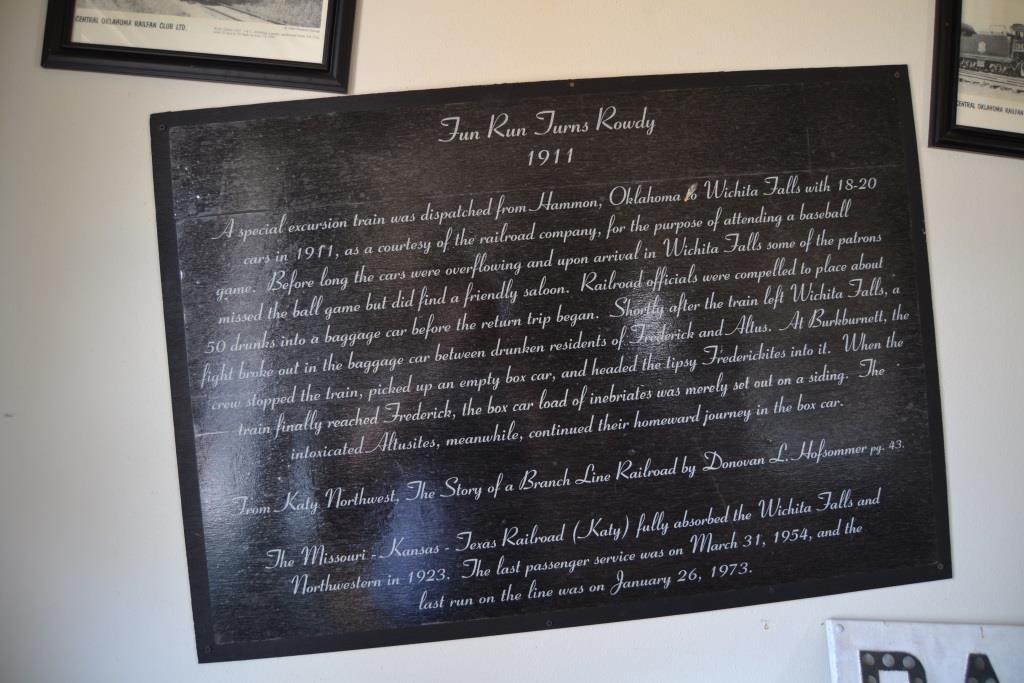 CENTRAL OKLAHOMA RAILFAN CLUB LTD.
CENTRAL OKLAHOMA RAILFAN
Fun Run Turns Rowdy
1911
A special excursion train was dispatched from Hammon, Oklahoma to Wichita Falls with 18-20
cars in 1911, as a courtesy of the railroad company, for the purpose of attending a baseball
game. Before long the cars were overflowing and upon arrival in Wichita Falls some of the patrons
missed the ball game but did find a friendly saloon. Railroad officials were compelled to place about
50 drunks into a baggage car before the return trip began. Shortly after the train left Wichita Falls, a
fight broke out in the baggage car between drunken residents of Frederick and Altus. At Burkburnett, the
crew stopped the train, picked up an empty box car, and headed the tipsy Frederickites into it. When the
train finally reached Frederick, the box car load of inebriates was merely set out on a siding. The
intoxicated Altusites, meanwhile, continued their homeward journey in the box car.
From Katy Northwest, The Story of a Branch Line Railroad by Donovan L. Hofsommer pg. 43.
The Missouri - Kansas - Texas Railroad (Katy) fully absorbed the Wichita Falls and
Northwestern in 1923. The last passenger service was on March 31, 1954, and the
last run on the line was on January 26, 1973.